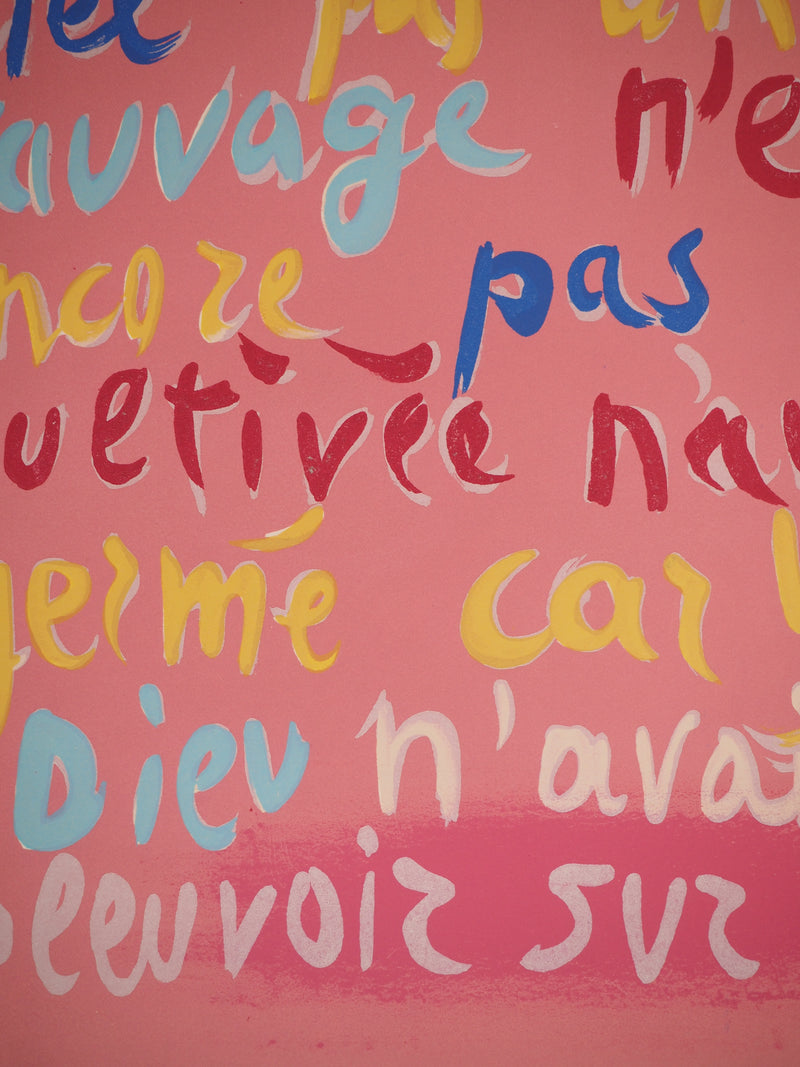 pas
auvage n'e
ncore pas
uetivée n'a
germé car
Dieu n'avai
pleuvoir sur